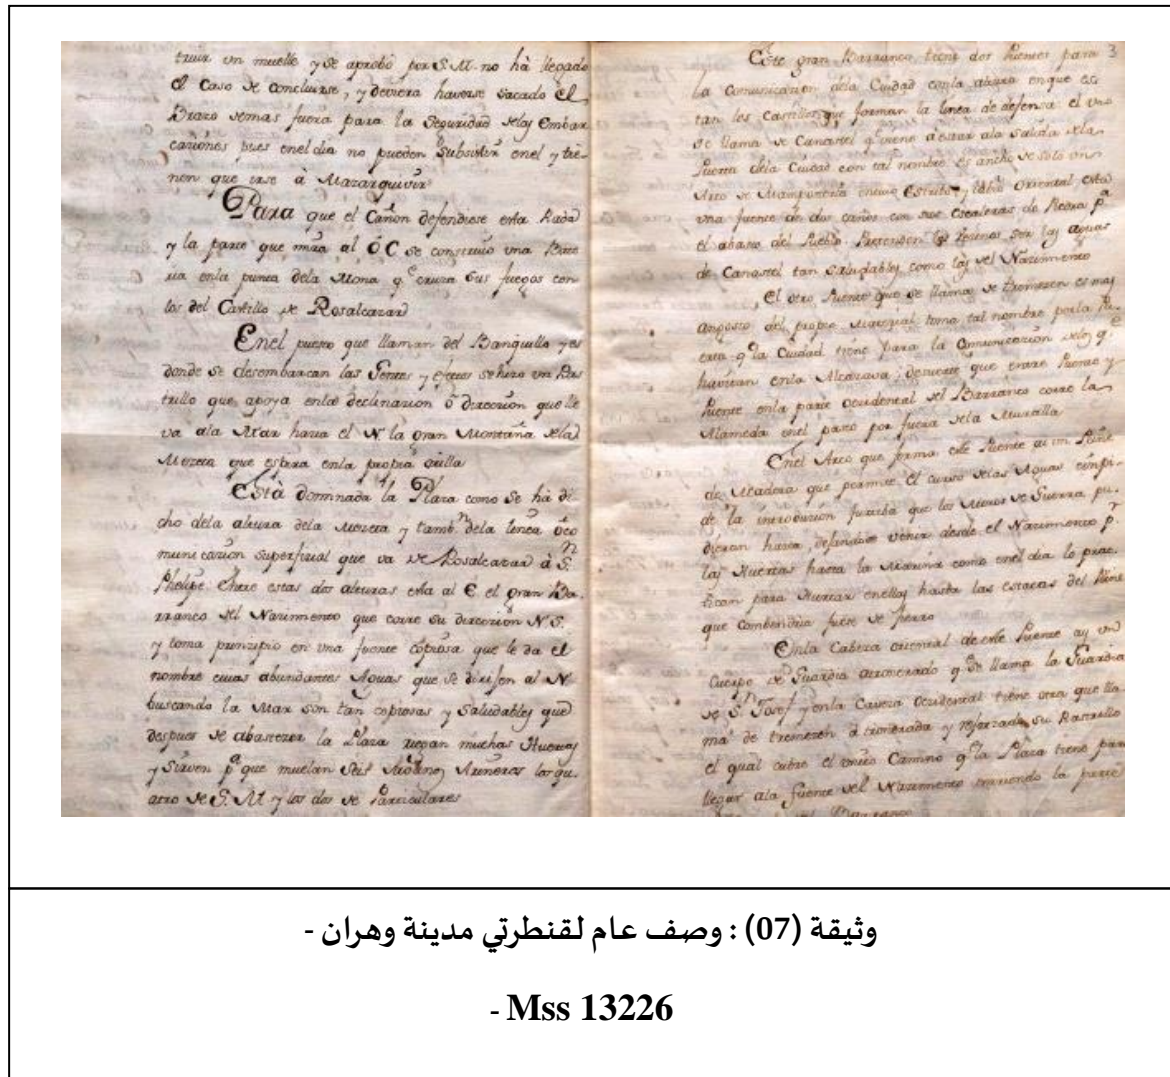 truir un muelle y se aprobó por S.M. no hà llegado
el Caso de concluirse, y deviera haverse sacado el
Brazo demas fuera para la Seguridad delas Embar
caciones pues enel dia no pueden Subsistir enel y tie-
nen que irse à Mazarquivir
Para que el Cañon defendiese esta Rada
y la parte que mira al OC se construió una Bate
ria enla punta dela Mona q.e cruza sus fuegos con
los del Castillo de Rosalcazar
Enel puesto que llaman del Banquillo y es
donde se desembarcan las Gentes y efectos se hizo un Ras
trillo que apoya enla declinacion ô direccion que lle
va ala Mar hacia el N la gran Montaña dela
Mezeta que estara enla propia orilla
Està dominada la Plaza como se hà di
cho dela altura dela Mezeta y tamb.n dela linea ô co
municacion superficial que va de Rosalcazar à S.n
Phelipe. Entre estas dos alturas esta al E. el gran Ba-
rranco del Nacimiento que corre su direccion N S.
y toma principio en una fuente copiosa que le da el
nombre cuias abundantes Aguas que se dirijen al N
buscando la Mar son tan copiosas y Saludables que
despues de abastezer la Plaza riegan muchas Huertas
y Sirven p.a que muelan Seis Molinos Arineros los qu-
atro de S. M. y los dos de Particulares
3
Este gran Barranco tiene dos Puentes para
la Comunicacion dela Ciudad conla altura enque es
tan los Castillos que forman la linea de defensa: el uno
se llama de Canastel q.e viene à estar ala Salida dela
Puerta dela Ciudad con tal nombre es ancho de solo un
Arco de Mamposteria en su Oriental, esta
una fuente de dos caños con sus escaleras de Piedra p.a
el abasto del Pueblo. Pretenden ser las aguas
de Canastel tan saludables como las del Nacimiento
El otro Puente que se llama de Tremezen es mas
angosto del propio Material toma tal nombre porla Pu-
erta q.e la Ciudad tiene para la Comunicacion delos q.e
havitan enla Alcazava; desuerte que entre Puente y
Puente enla parte Occidental del Barranco corre la
Alameda enel paseo por fuera dela Muralla
Enel Arco que forma este Puente ai un Peine
de Madera que permite el curso delas Aguas è impi-
de la introducion furtiva que los Moros de Guerra pu-
dieran hacer, dejandose venir desde el Nacimiento p.r
las Huertas hasta la Marina como enel dia lo prac
tican para Hurtar enellas hasta las estacas del Peine
que combendria fuese de fierro
Enla Cabeza oriental de este Puente ay un
Cuerpo de Guardia atronerado q.e se llama la Guardia
de S.n Josef y enla Caveza Occidental tiene otra que lla-
man de Tremezen atronerada y reforzada su Rastrillo
el qual cubre el unico Camino q.e la Plaza tiene para
llegar ala fuente del Nacimiento la parte
Barranco
وثيقة (07) : وصف عام لقنطرتي مدينة وهران -
- Mss 13226